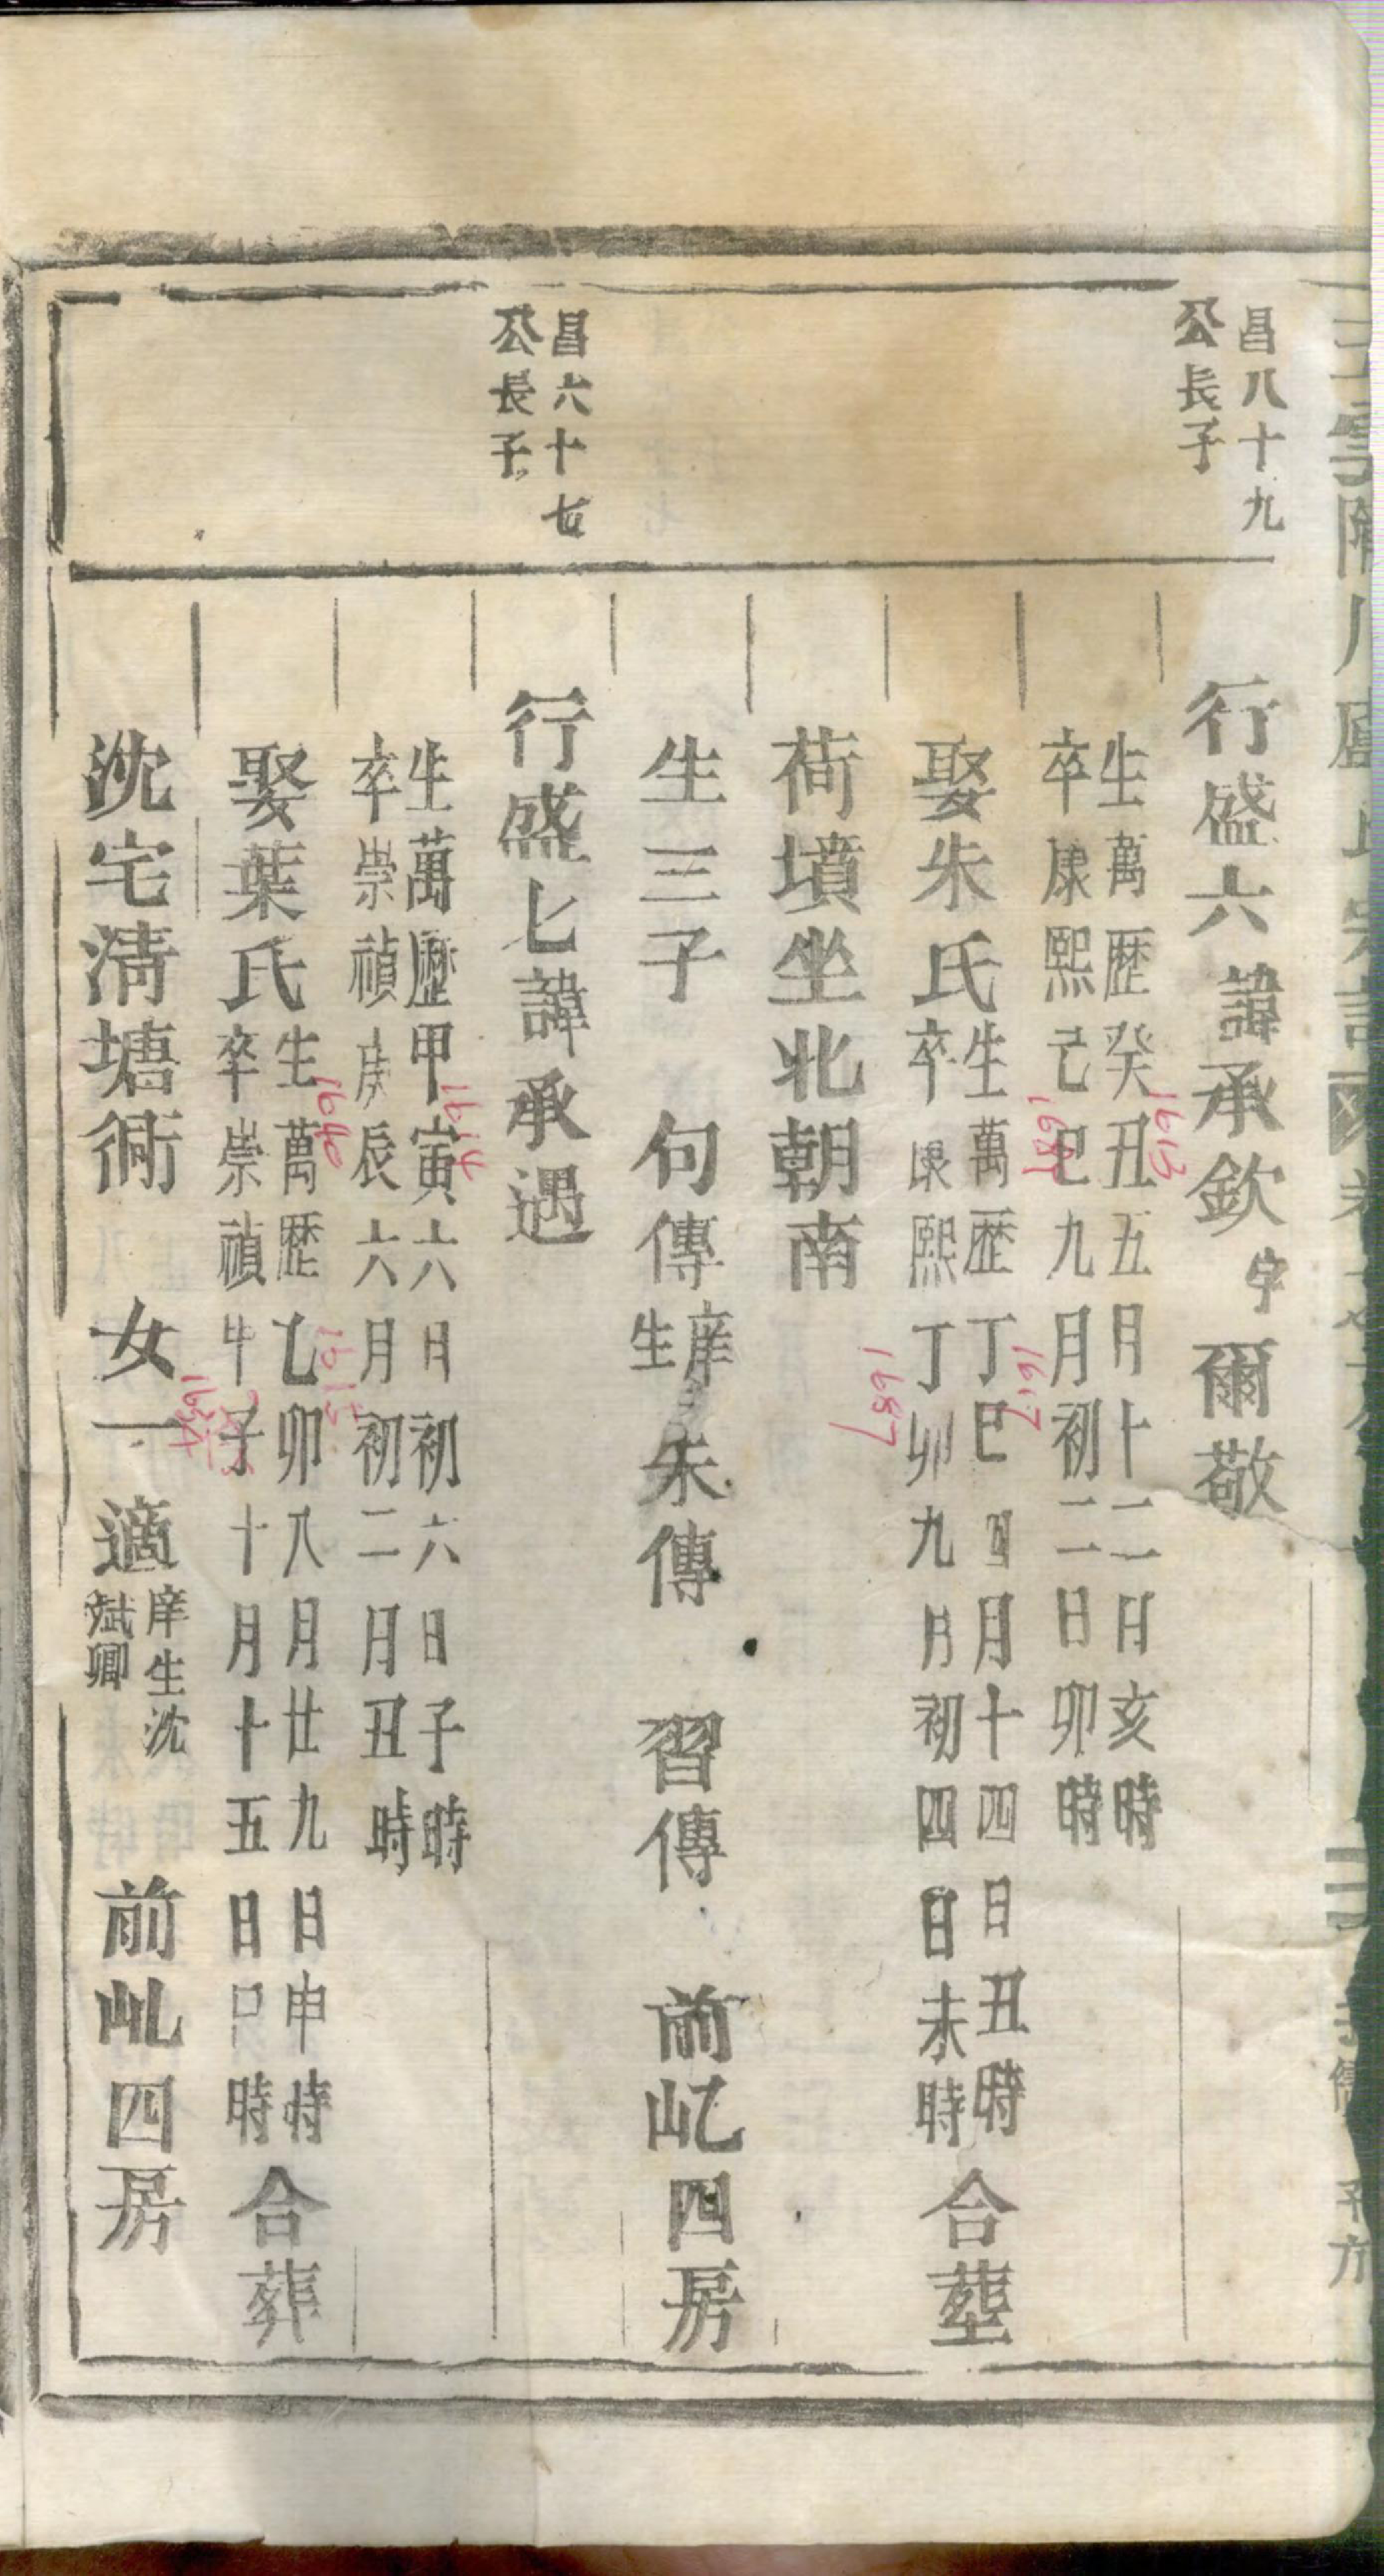 昌八十九
公長子
行盛六諱承欽字爾敬
生萬歷癸丑五月十二日亥時
1613
卒康熙己巳九月初二日卯時
1689
娶朱氏
生萬歷丁巳四月十四日丑時
1617
卒康熙丁卯九月初四日未時
1687
合塟
荷墳坐北朝南
生三子 句傳庠生 朱傳 習傳 前屺四房
昌六十七
公長子
行盛七諱承遇
生萬歷甲寅六月初六日子時
1614
卒崇禎庚辰六月初二日丑時
1640
娶葉氏
生萬歷乙卯八月廿九日申時
1615
卒崇禎 子十月十五日 時
合葬
沈宅清塘衕 女一 適庠生沈斌卿 前屺四房